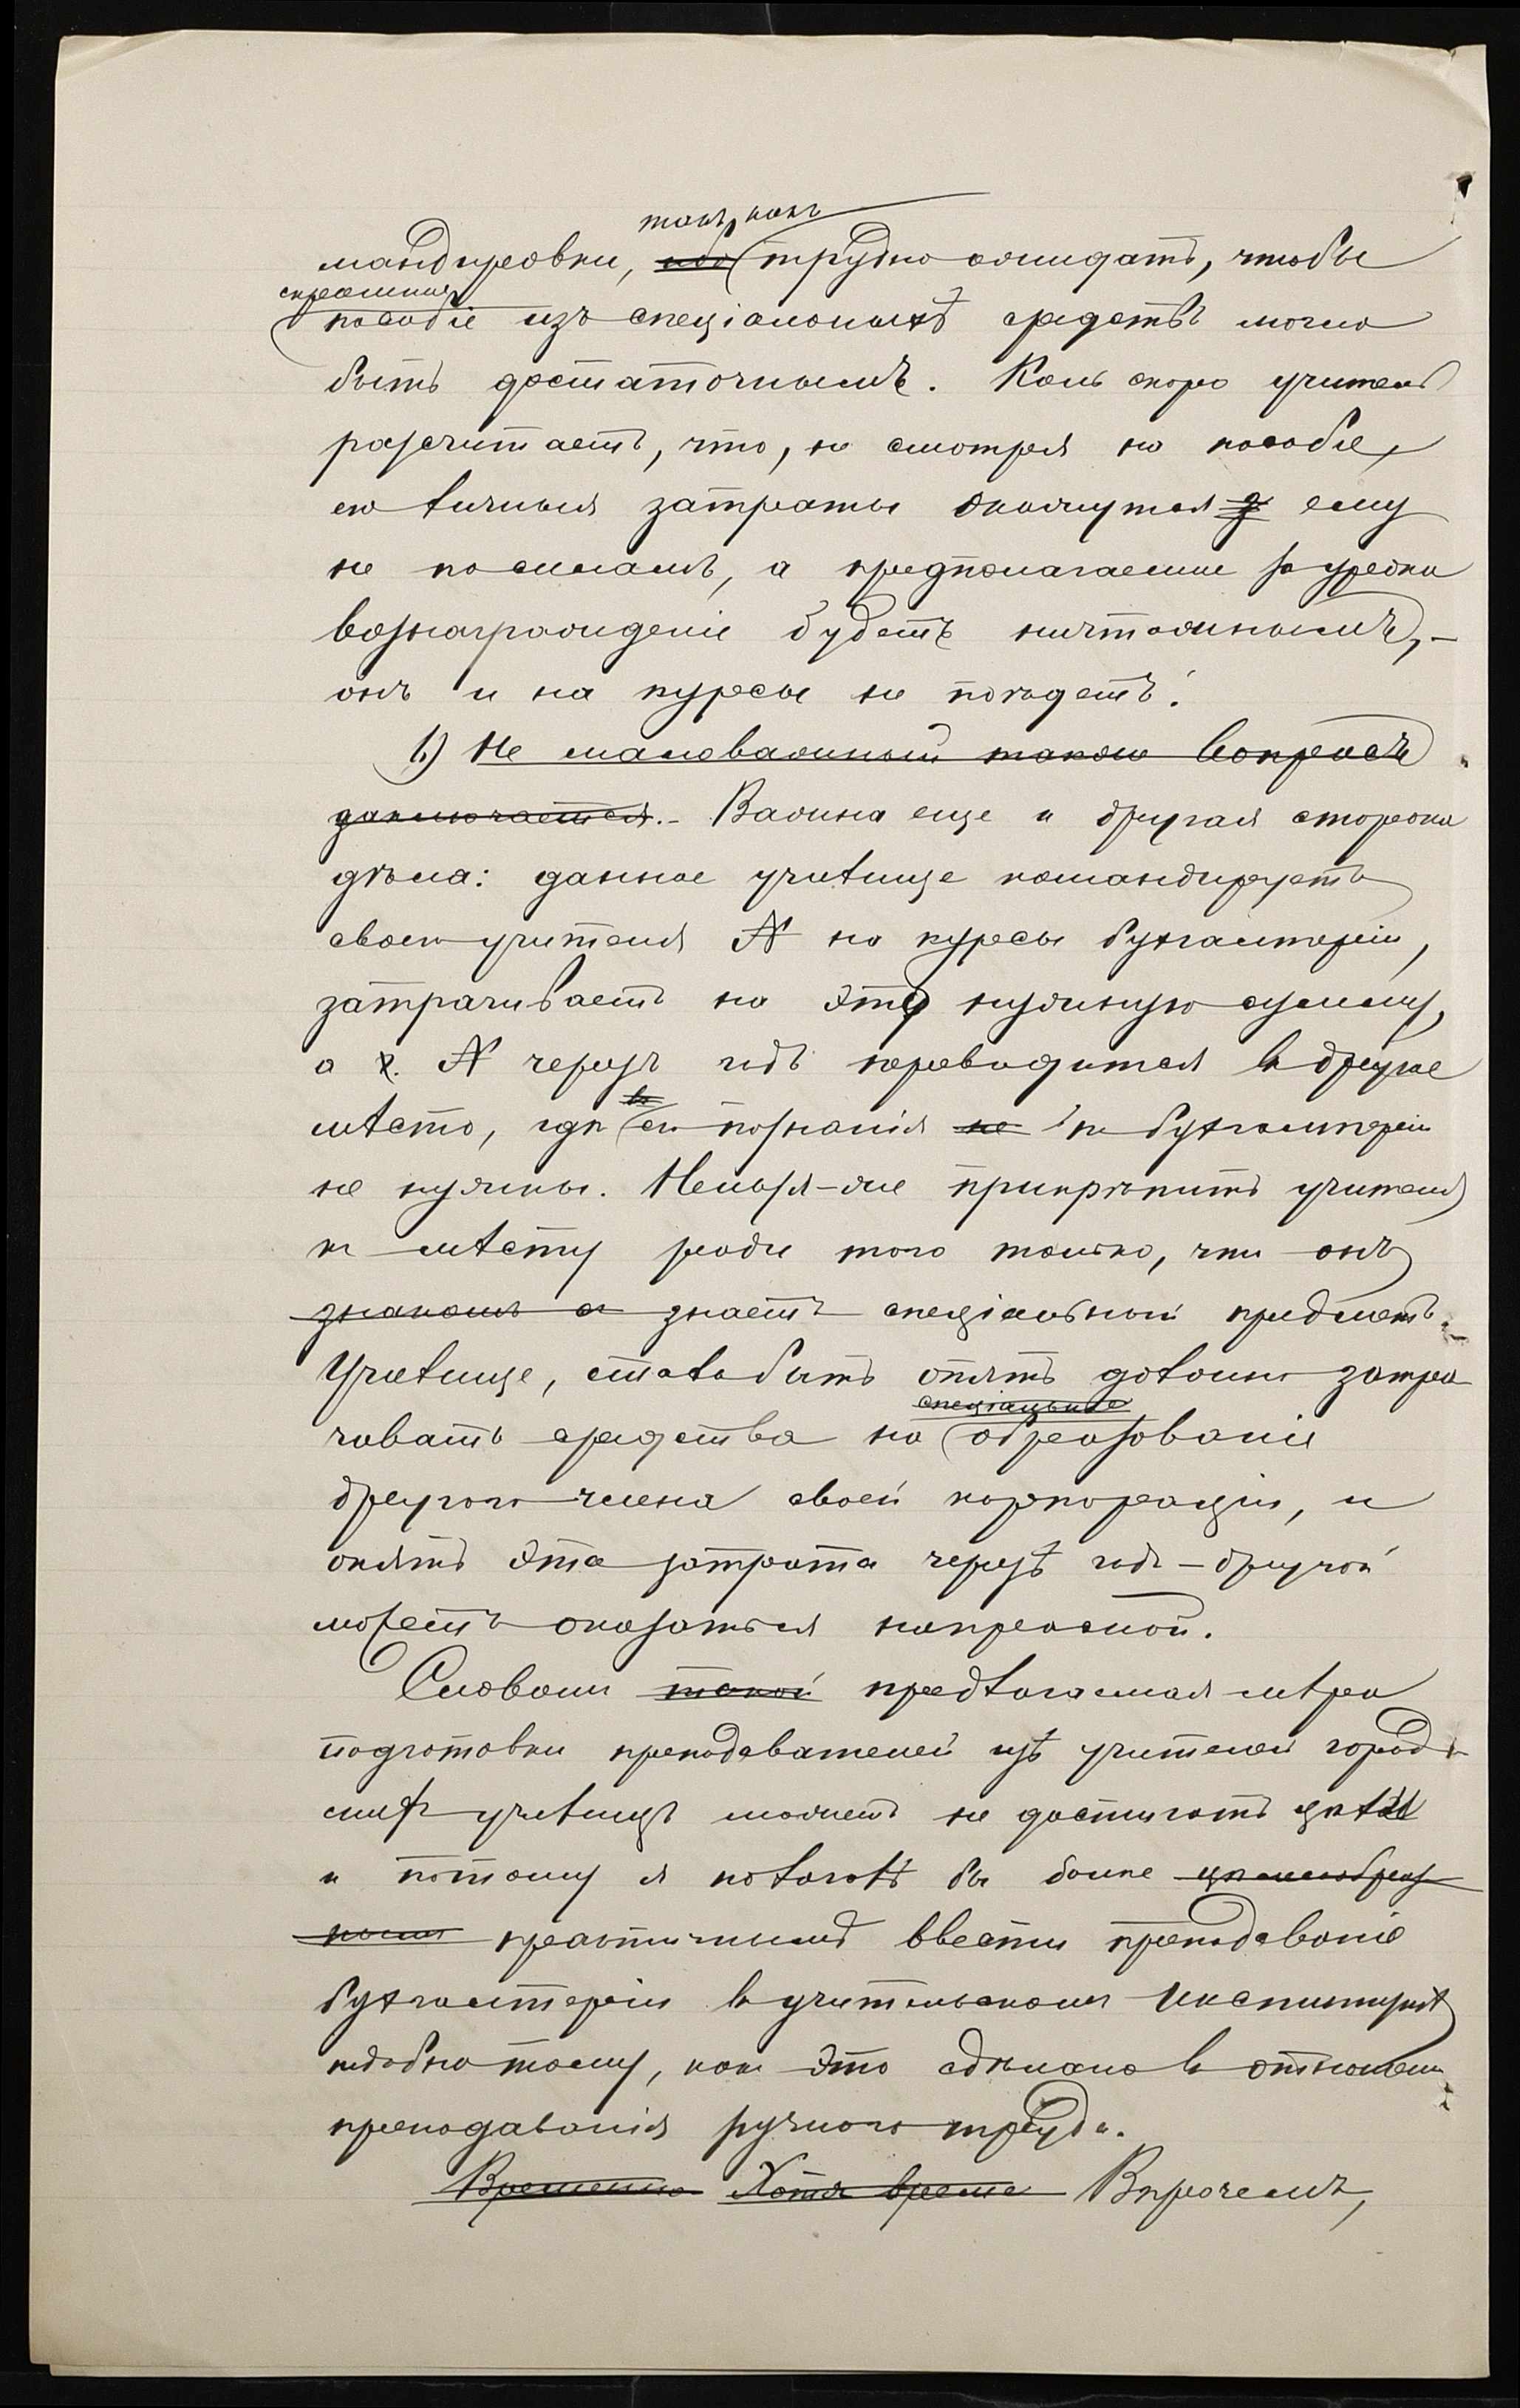 такъ какъ
мандировки, ибо трудно ожидать, чтобы
скромныя
пособіе изъ спеціальныхъ средствъ могло
быть достаточнымъ. Коль скоро учитель
разсчитаетъ, что, не смотря на пособіе,
его личныя затраты окажутся ему
не по силамъ, а предполагаемые за уроки
вознагражденіе будетъ ничтожнымъ, –
онъ и на курсы не поѣдетъ.
Не маловажный также вопросъ
заключается. – Важна еще и другая сторона
дѣла: данное училище командируетъ
своего учителя N на курсы бухгалтеріи,
затрачиваетъ на это нужную сумму,
а г. N черезъ годъ переводится въ другое
мѣсто, гдѣ его познанія не въ бухгалтеріи
не нужны. Нельзя-же прикрѣпить учителя
къ мѣсту ради того только, что онъ
знакомъ съ знаетъ спеціальный предметъ.
Училище, стало быть опять должно затра
спеціальное
чивать средства на образованіе
другого члена своей корпораціи, и
опять эта затрата черезъ годъ – другой
можетъ оказаться напрасной.
Словомъ такой предлагаемая мѣра
подготовки преподавателей изъ учителей город
скихъ училищъ можетъ не достигать цѣли
и потому я полагалъ бы болѣе цѣлесообраз
нымъ практичнымъ ввести преподаваніе
бухгалтеріи въ учительскомъ Институтѣ
подобно тому, какъ это сдѣлано въ отношеніи
преподаванія ручного труда.
Временно Хотя время Впрочемъ,